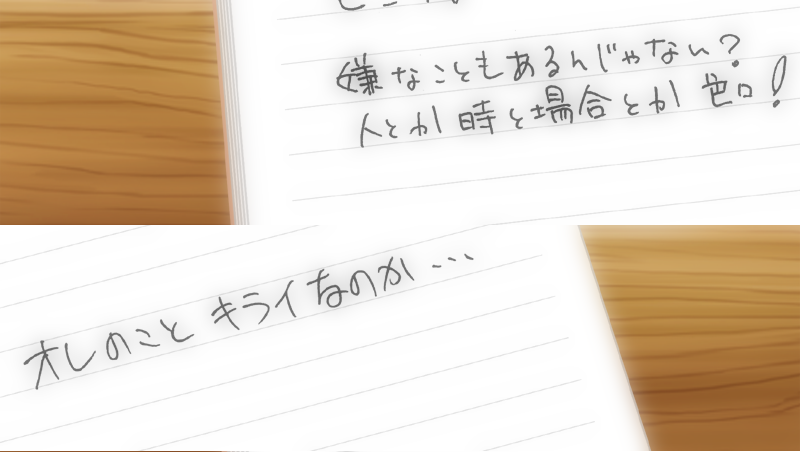 嫌なこともあるんじゃない?
人とか時と場合とか色ロ!
オレのこと キライなのか…